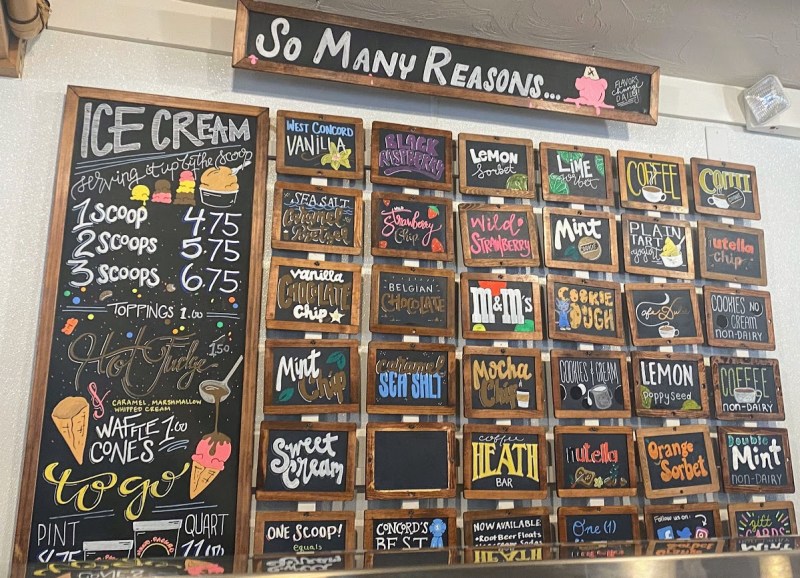 So Many Reasons...
FLAVORS
change
DAILY
ICE CREAM
Serving it up by the Scoop
1 SCOOP 4.75
2 SCOOPS 5.75
3 SCOOPS 6.75
TOPPINGS 1.00
Hot Fudge 1.50
& CARAMEL, MARSHMALLOW
WHIPPED CREAM
WAFFLE 1.00
CONES
to go
PINT QUART
WEST CONCORD
VANILLA
BLACK
RASPBERRY
LEMON
Sorbet
LIME
Sorbet
COFFEE
SEA SALT
Caramel
Pretzel
Strawberry
Chip
Wild
STRAWBERRY
Mint
PLAIN
TART
yogurt
nutella
chip
vanilla
CHOCOLATE
chip
BELGIAN
CHOCOLATE
m&m's
COOKIE
DOUGH
COOKIES NO
CREAM
NON-DAIRY
Mint
Chip
caramel
SEA SALT
Mocha
Chip
COOKIES & CREAM
LEMON
Poppyseed
COFFEE
NON-DAIRY
Sweet
Cream
coffee
HEATH
BAR
nutella
Orange
Sorbet
Double
Mint
NON-DAIRY
ONE SCOOP!
equals
CONCORD'S
BEST
NOW AVAILABLE:
• Root Beer Floats
One (1)
Follow us on:
gift
CARDS